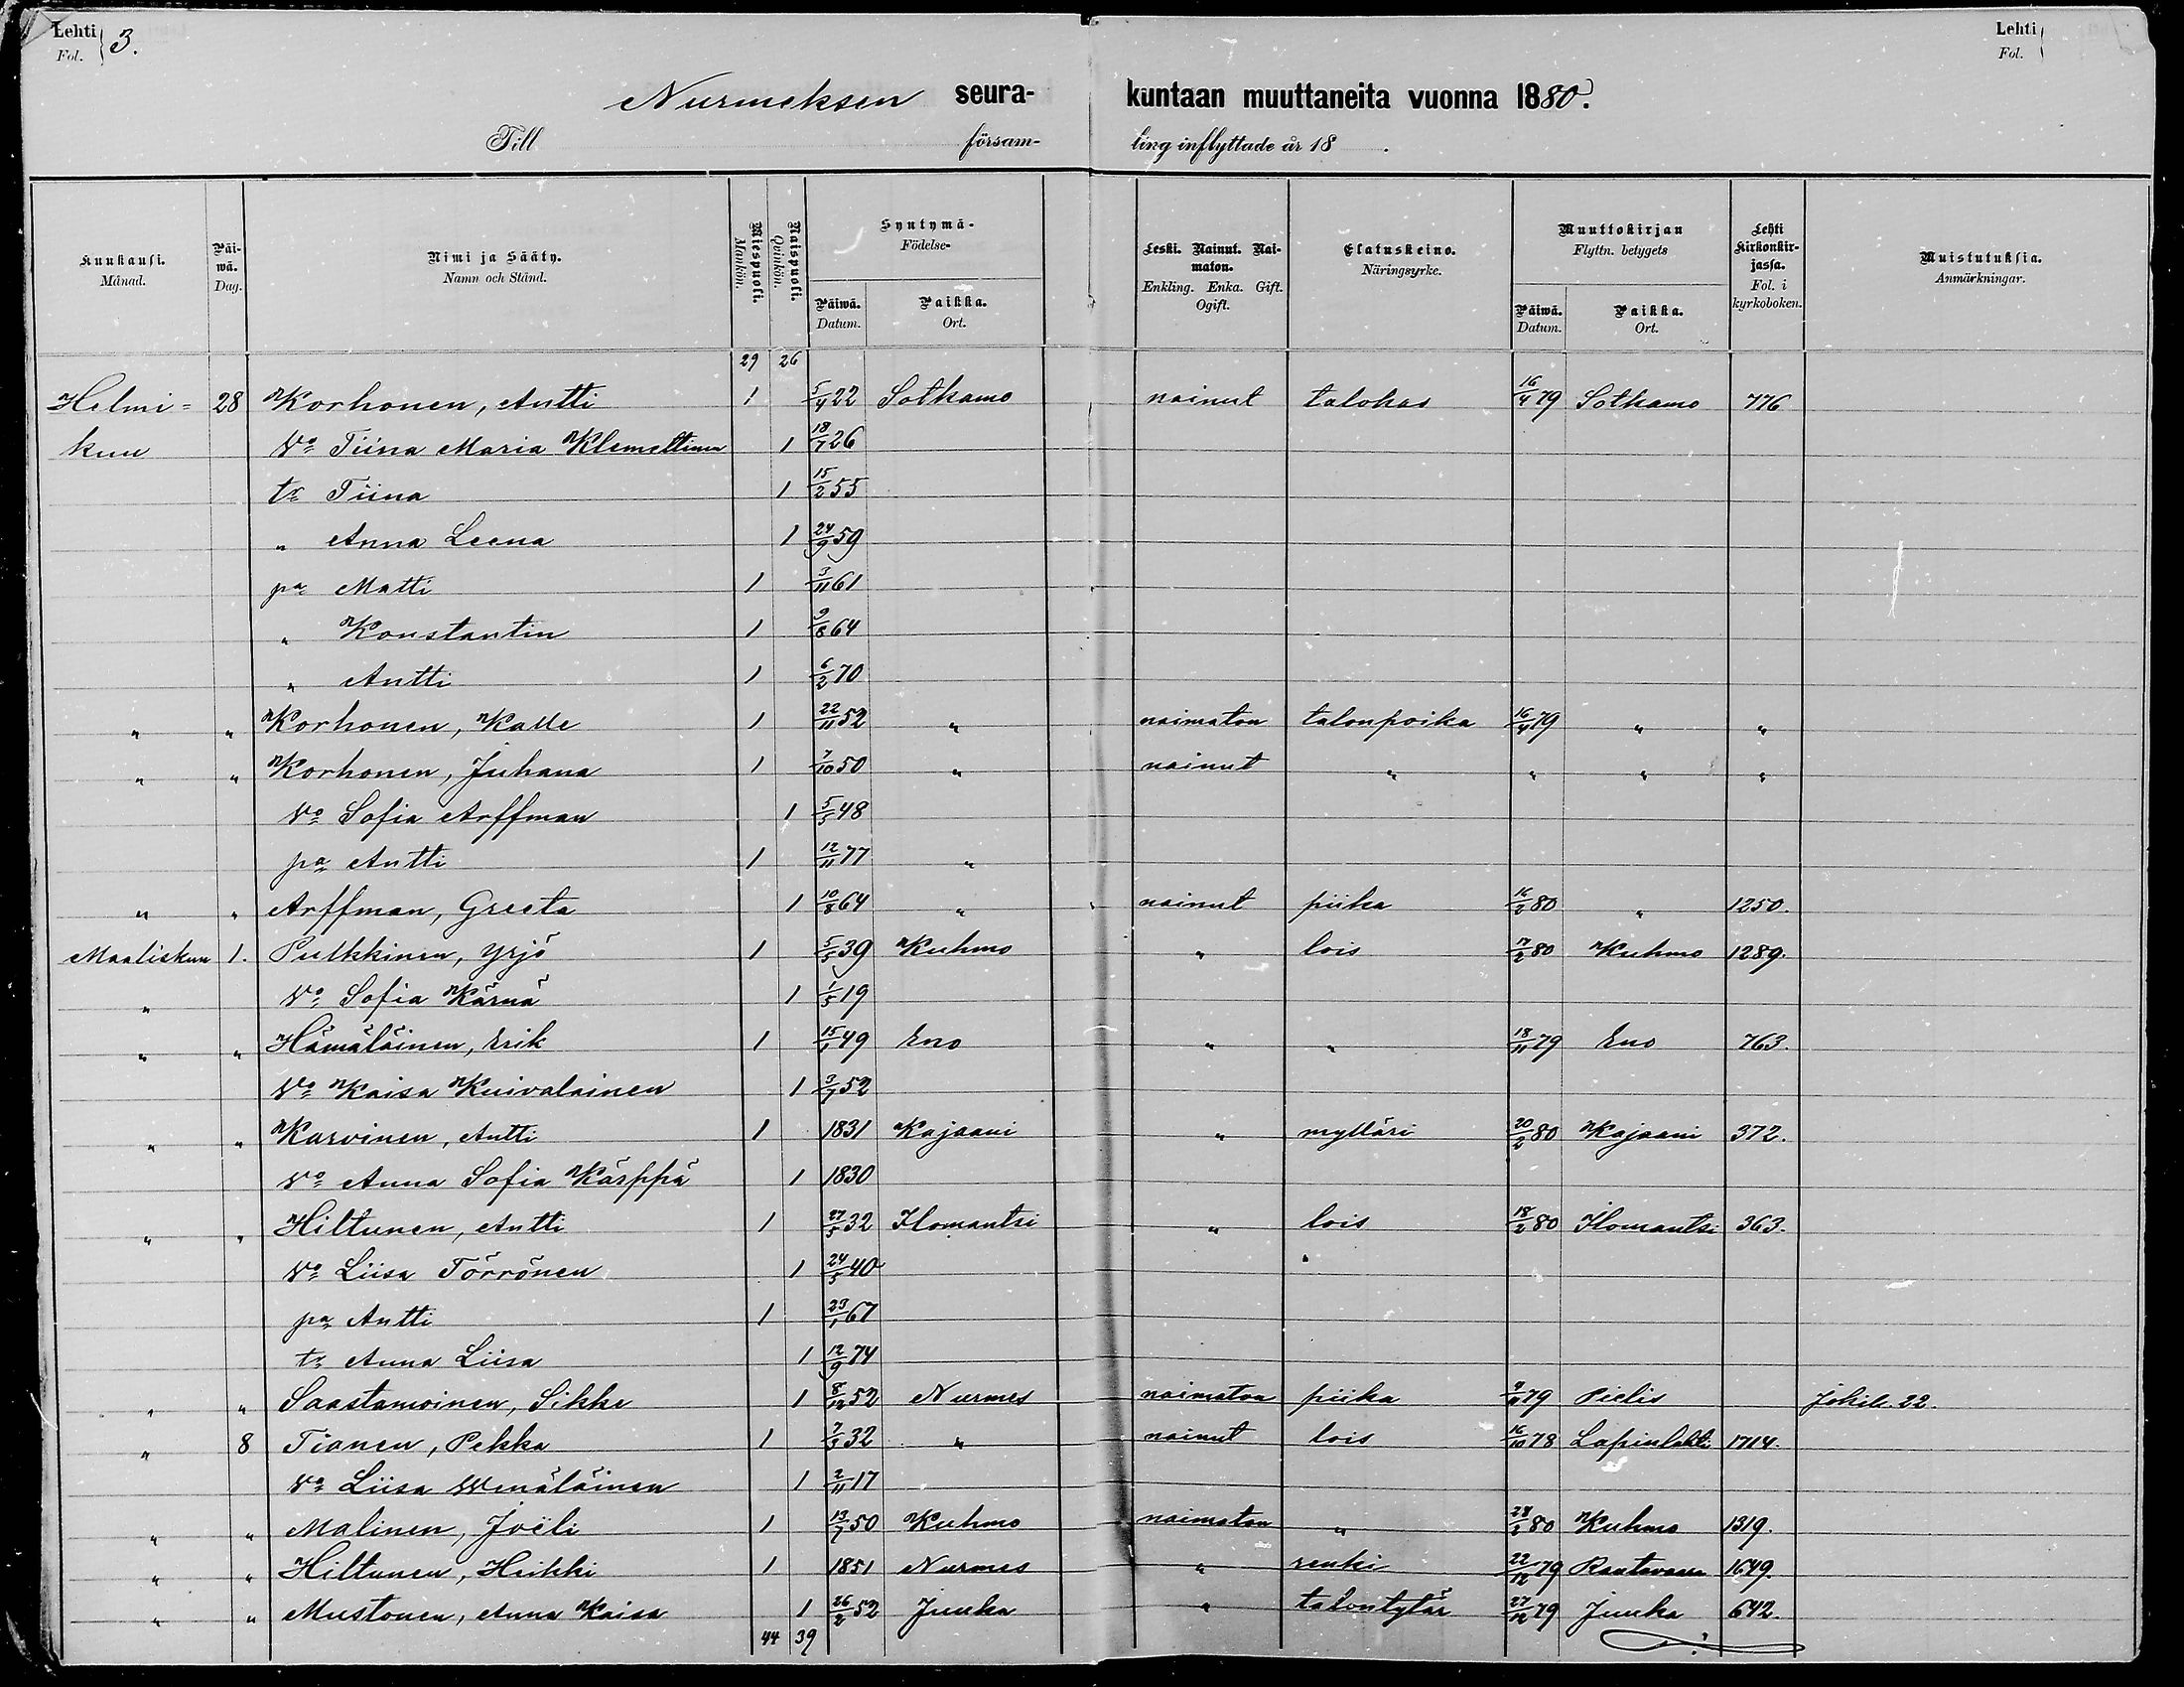 Lehti Fol. 3.
Lehti Fol.
Nurmeksen seura- kuntaan muuttaneita vuonna 1880.
Till försam- ling inflyttade år 18 .
Kuukausi. Månad. | Päi-wä. Dag. | Nimi ja Sääty. Namn och Stånd. | Miespuoli. Mankön. | Naispuoli. Qvinkön. | Syntymä- Födelse- | Leski. Nainut. Nai-maton. Enkling. Enka. Gift. Ogift. | Elatuskeino. Näringsyrke. | Muuttokirjan Flyttn. betygets | Lehti Kirkonkir-jassa. Fol. i kyrkoboken. | Muistutuksia. Anmärkningar.
Päiwä. Datum. | Paikka. Ort. | Päiwä. Datum. | Paikka. Ort.
29 26
Helmi= 28 Korhonen, Antti 1 5/4 22 Sotkamo nainut talokas 16/4 79 Sotkamo 776
kuu Vo Tiina Maria Klemettinen 1 18/7 26
tr Tiina 1 15/2 55
" Anna Leena 1 24/9 59
pa Matti 1 3/11 61
" Konstantin 1 9/8 64
" Antti 1 6/2 70
" " Korhonen, Kalle 1 22/11 52 " naimaton talonpoika 16/4 79 " "
" " Korhonen, Juhana 1 7/10 50 " nainut " " " "
Vo Sofia Arffman 1 5/5 48
pa Antti 1 12/11 77 "
" " Arffman, Greeta 1 10/8 64 " nainut piika 16/2 80 " 1250.
Maaliskuu 1. Pulkkinen, Yrjö 1 5/5 39 Kuhmo " lois 17/2 80 Kuhmo 1289.
" Vo Sofia Kärnä 1 1/5 19
" " Hämäläinen, Erik 1 15/1 49 Eno " " 18/11 79 Eno 763.
Vo Kaisa Kuivalainen 1 3/7 52
" " Karvinen, Antti 1 1831 Kajaani " mylläri 20/2 80 Kajaani 372.
Vo Anna Sofia Kärppä 1 1830
" " Hiltunen, Antti 1 27/5 32 Ilomantsi " lois 18/2 80 Ilomantsi 363.
Vo Liisa Törrönen 1 24/5 40 "
pa Antti 1 23/1 67
tr Anna Liisa 1 12/9 74
" " Saastamoinen, Sikke 1 8/12 52 Nurmes naimaton piika 79 Pielis 22.
" 8 Tianen, Pekka 1 7/3 32 " nainut lois 16/10 78 Lapinlahti 1714.
Vo Liisa Wenäläinen 1 2/11 17
" " Malinen, Joëli 1 13/7 50 Kuhmo naimaton " 28/2 80 Kuhmo 1319.
" " Hiltunen, Heikki 1 1851 Nurmes " renki 22/12 79 Rautavaara 1649.
" " Mustonen, Anna Kaisa 1 26/2 52 Juuka " talontytär 27/12 79 Juuka 642.
44 39